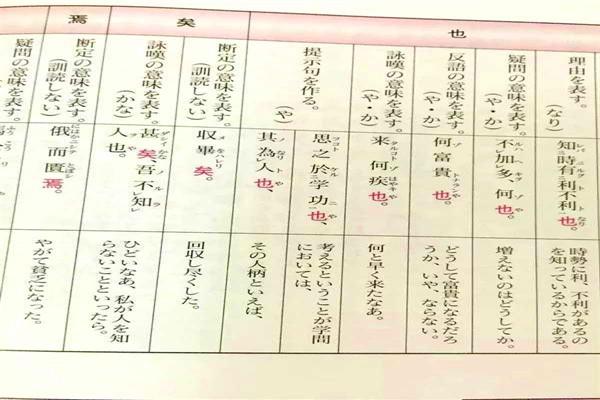 也
理由を表す。
(なり)
知時有利不利也。
時勢に利、不利があるの
を知っているからである。
疑問の意味を表す。
(や・か)
不加多、何也。
増えないのはどうしてか。
反語の意味を表す。
(や・か)
何富貴也。
どうして富貴になるだろ
うか、いや、ならない。
詠嘆の意味を表す。
(や・か)
来何疾也。
何と早く来たなあ。
提示句を作る。
(や)
思之於学功也、
考えるということが学問
においては、
其為人也、
その人柄といえば、
矣
断定の意味を表す。
(訓読しない)
収畢矣。
回収し尽くした。
詠嘆の意味を表す。
(かな)
甚矣、吾不知
人也。
ひどいなあ、私が人を知
らないことといったら。
焉
断定の意味を表す。
(訓読しない)
俄而匱焉。
やがて貧乏になった。
疑問の意味を表す。